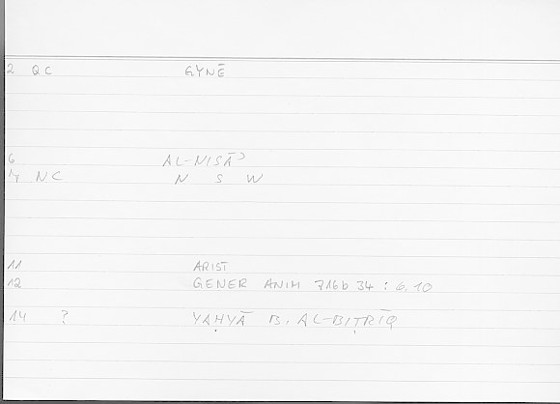 2 QC GYNĒ
6 AL-NISĀʾ
7 NC N S W
11 ARIST
12 GENER ANIM 716b 34 : 6.10
14 ? YAḤYĀ B. AL-BIṬRĪQ